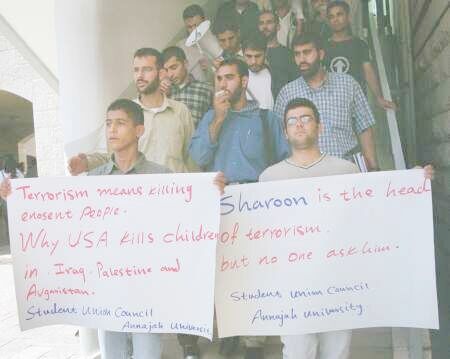 Terrorism means killing
enosent People.
Why USA kills children
in Iraq. Palestine and
Avganistan.
Student Union Council
Annajah University
Sharoon is the head
of terrorism.
but no one ask him.
Student Union Council
Annajah University